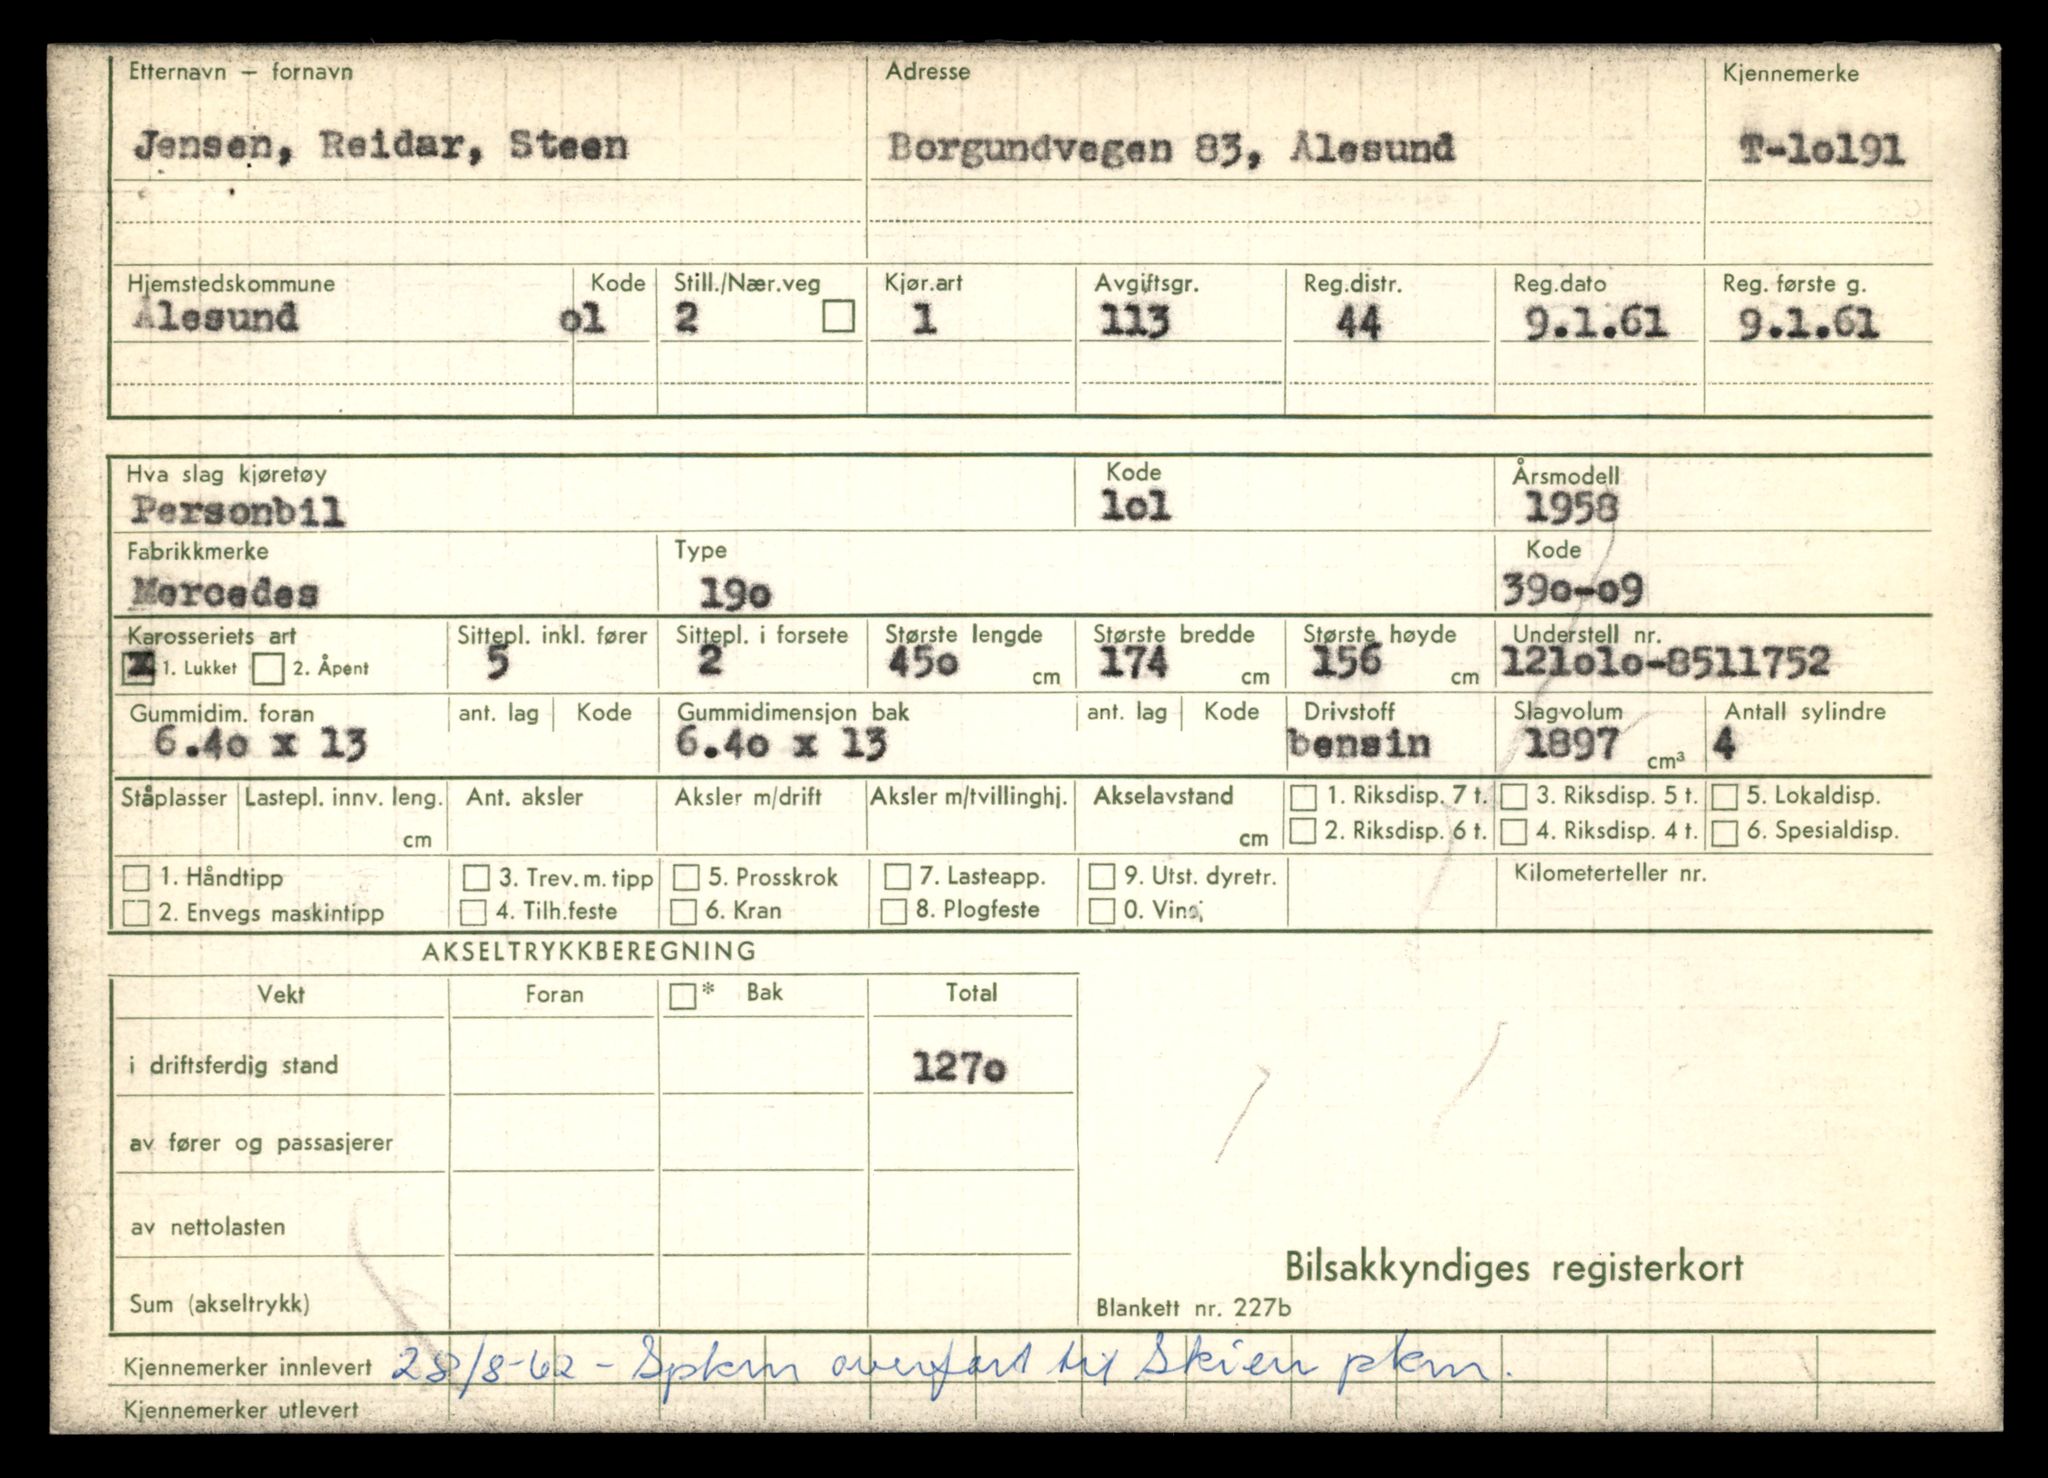 Etternavn – fornavn Adresse Kjennemerke
Jensen, Reidar, Steen Borgundvegen 83, Ålesund T-lol91
Hjemstedskommune Kode Still./Nær.veg Kjør.art Avgiftsgr. Reg.distr. Reg.dato Reg. første g.
Ålesund ol 2 1 113 44 9.1.61 9.1.61
Hva slag kjøretøy Kode Årsmodell
Personbil lol 1958
Fabrikkmerke Type Kode
Mercedes 19o 39o-o9
Karosseriets art Sittepl. inkl. fører Sittepl. i forsete Største lengde Største bredde Største høyde Understell nr.
x 1. Lukket 2. Åpent 5 2 45o cm 174 cm 156 cm 121olo-8511752
Gummidim. foran ant. lag Kode Gummidimensjon bak ant. lag Kode Drivstoff Slagvolum Antall sylindre
6.4o x 13 6.4o x 13 bensin 1897 cm³ 4
Ståplasser Lastepl. innv. leng. cm Ant. aksler Aksler m/drift Aksler m/tvillinghj. Akselavstand cm 1. Riksdisp. 7 t. 3. Riksdisp. 5 t. 5. Lokaldisp.
2. Riksdisp. 6 t. 4. Riksdisp. 4 t. 6. Spesialdisp.
1. Håndtipp 3. Trev. m. tipp 5. Prosskrok 7. Lasteapp. 9. Utst. dyretr. Kilometerteller nr.
2. Envegs maskintipp 4. Tilh.feste 6. Kran 8. Plogfeste 0. Vinsj
AKSELTRYKKBEREGNING
Vekt Foran * Bak Total
i driftsferdig stand 127o
av fører og passasjerer
av nettolasten
Bilsakkyndiges registerkort
Sum (akseltrykk) Blankett nr. 227b
Kjennemerker innlevert 28/8-62 - Spkm overført til Skien pkm.
Kjennemerker utlevert